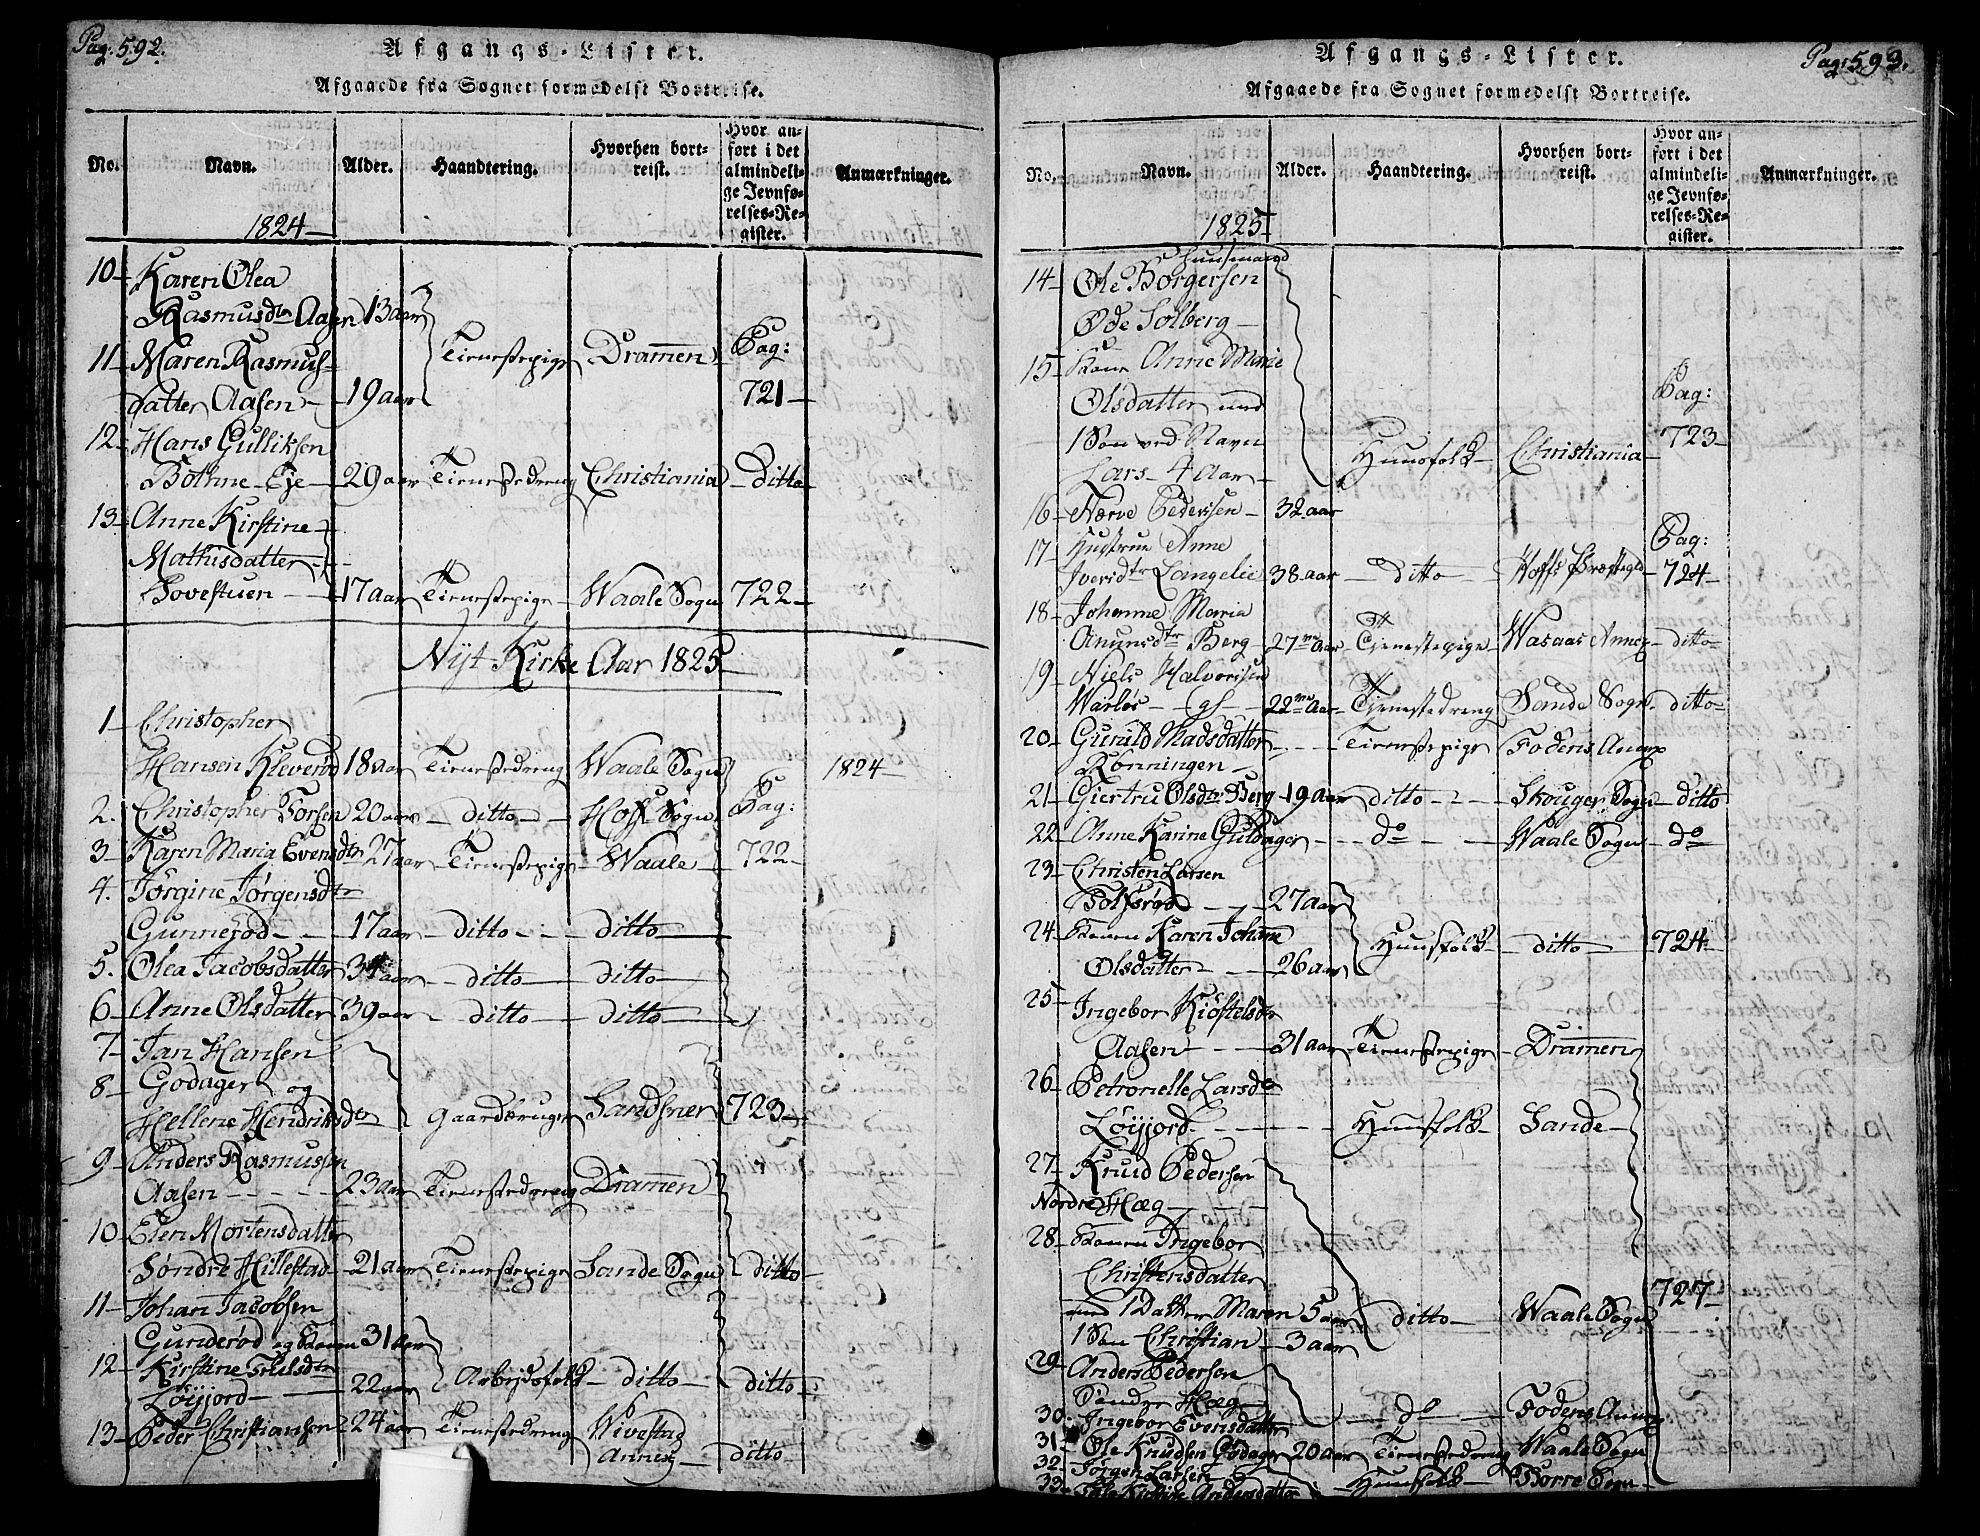 Pag: 592.
Afgangs-Lister.
Afgaaede fra Sognet formedelst Bortreise.
No. Navn. Alder. Haandtering. Hvorhen bortreist. Hvor anført i det almindelige Jevnførelses-Register. Anmærkninger.
1824
10 Karen Olea
Rasmusdtr Aasen 13 aar
11 Maren Rasmus- Tienestepige Dramen Pag:
datter Aasen 19 aar 721
12 Hans Gulliksen
Bothne Eje 29 aar Tienestedreng Christiania Ditto
13 Anne Kirstine
Mathisdatter
Sovestuen 17 aar Tienestepige Waale Sogn 722
Nyt Kirke Aar 1825
1 Christopher
Hansen Kleverød 18 aar Tienestedreng Waale Sogn 1824
2. Christopher Torsen 20 aar ditto Hoff Sogn Pag:
3 Karen Maria Evensdtr 27 aar Tienestepige Waale 722
4. Jørgine Jørgensdtr
Gunnerød 17 aar ditto ditto
5. Olea Jacobsdatter 34 aar ditto ditto
6 Anne Olsdatter 39 aar ditto ditto
7 Jan Hansen
8 Godager og
Hellene Hendriksdtr Gaardbruger Sandsver 723
9 Anders Rasmussen
Aasen 23 aar Tienestedreng Dramen
10 Elen Mortensdatter
Søndre Hillestad 21 aar Tienestepige Sande Sogn ditto
11 Johan Jacobsen
Gunderød og Konen 31 aar
12 Kirstine
Løijjord 22 aar Arbejdsfolk ditto ditto
13 Peder Christiansen 24 aar Tienestedreng Wivestad
Annex ditto
Pag: 593.
Afgangs-Lister.
Afgaaede fra Sognet formedelst Bortreise.
No. Navn. Alder. Haandtering. Hvorhen bortreist. Hvor anført i det almindelige Jevnførelses-Register. Anmærkninger.
1825
Huusmand
14 Ole Borgersen
Øde Solberg
15 Kone Anne Marie
Olsdatter med Pag:
1 Søn ved Navn Huusfolk Christiania 723
Lars 4 Aar
16 Nærve Pedersen 32 aar
17 Hustrue Anne Pag:
Iversdtr Langelie 38 aar ditto Hoffs Præstegld 724
18 Johanne Maria
Amunsdtr Berg 27 aar Tjenestepige Wasaas Annex ditto
19 Niels Halvorsen
Warløs 22 Aar Tjenestedreng Sande Sogn ditto
20 Gunild Madsdatter Tienestepige Fodens Annex
Rønningen
21 Giertru Olsdtr Berg 19 Aar ditto Skouger Sogn ditto
22 Anne Karine Guldager do Waale Sogn do
23 Christen Larsen
Tolfsrød 27 aar
24 Konen Karen Johane Huusfolk ditto 724
Olsdatter 26 aar
25 Ingebor Kiøstelsdr
Aasen 31 aar Tienestepige Dramen
26 Petronelle Larsdtr
Løijjord Huusfolk Sande
27 Knud Pedersen
Nordre Hæg
28 Konen Ingebor
Christensdatter
med 1 Datter Maren 5 aar ditto Waale Sogn 727
1 Søn Christian 3 aar
29 Anders Pedersen
Søndre Hæg do Fodens Annex
30. Ingebor Evensdatter
31 Ole Knudsen Godager 20 aar Tienestedreng Waale Sogn
32. Jørgen Larsen Huusfolk Borre Sogn
33 Kirstine Andersdatter